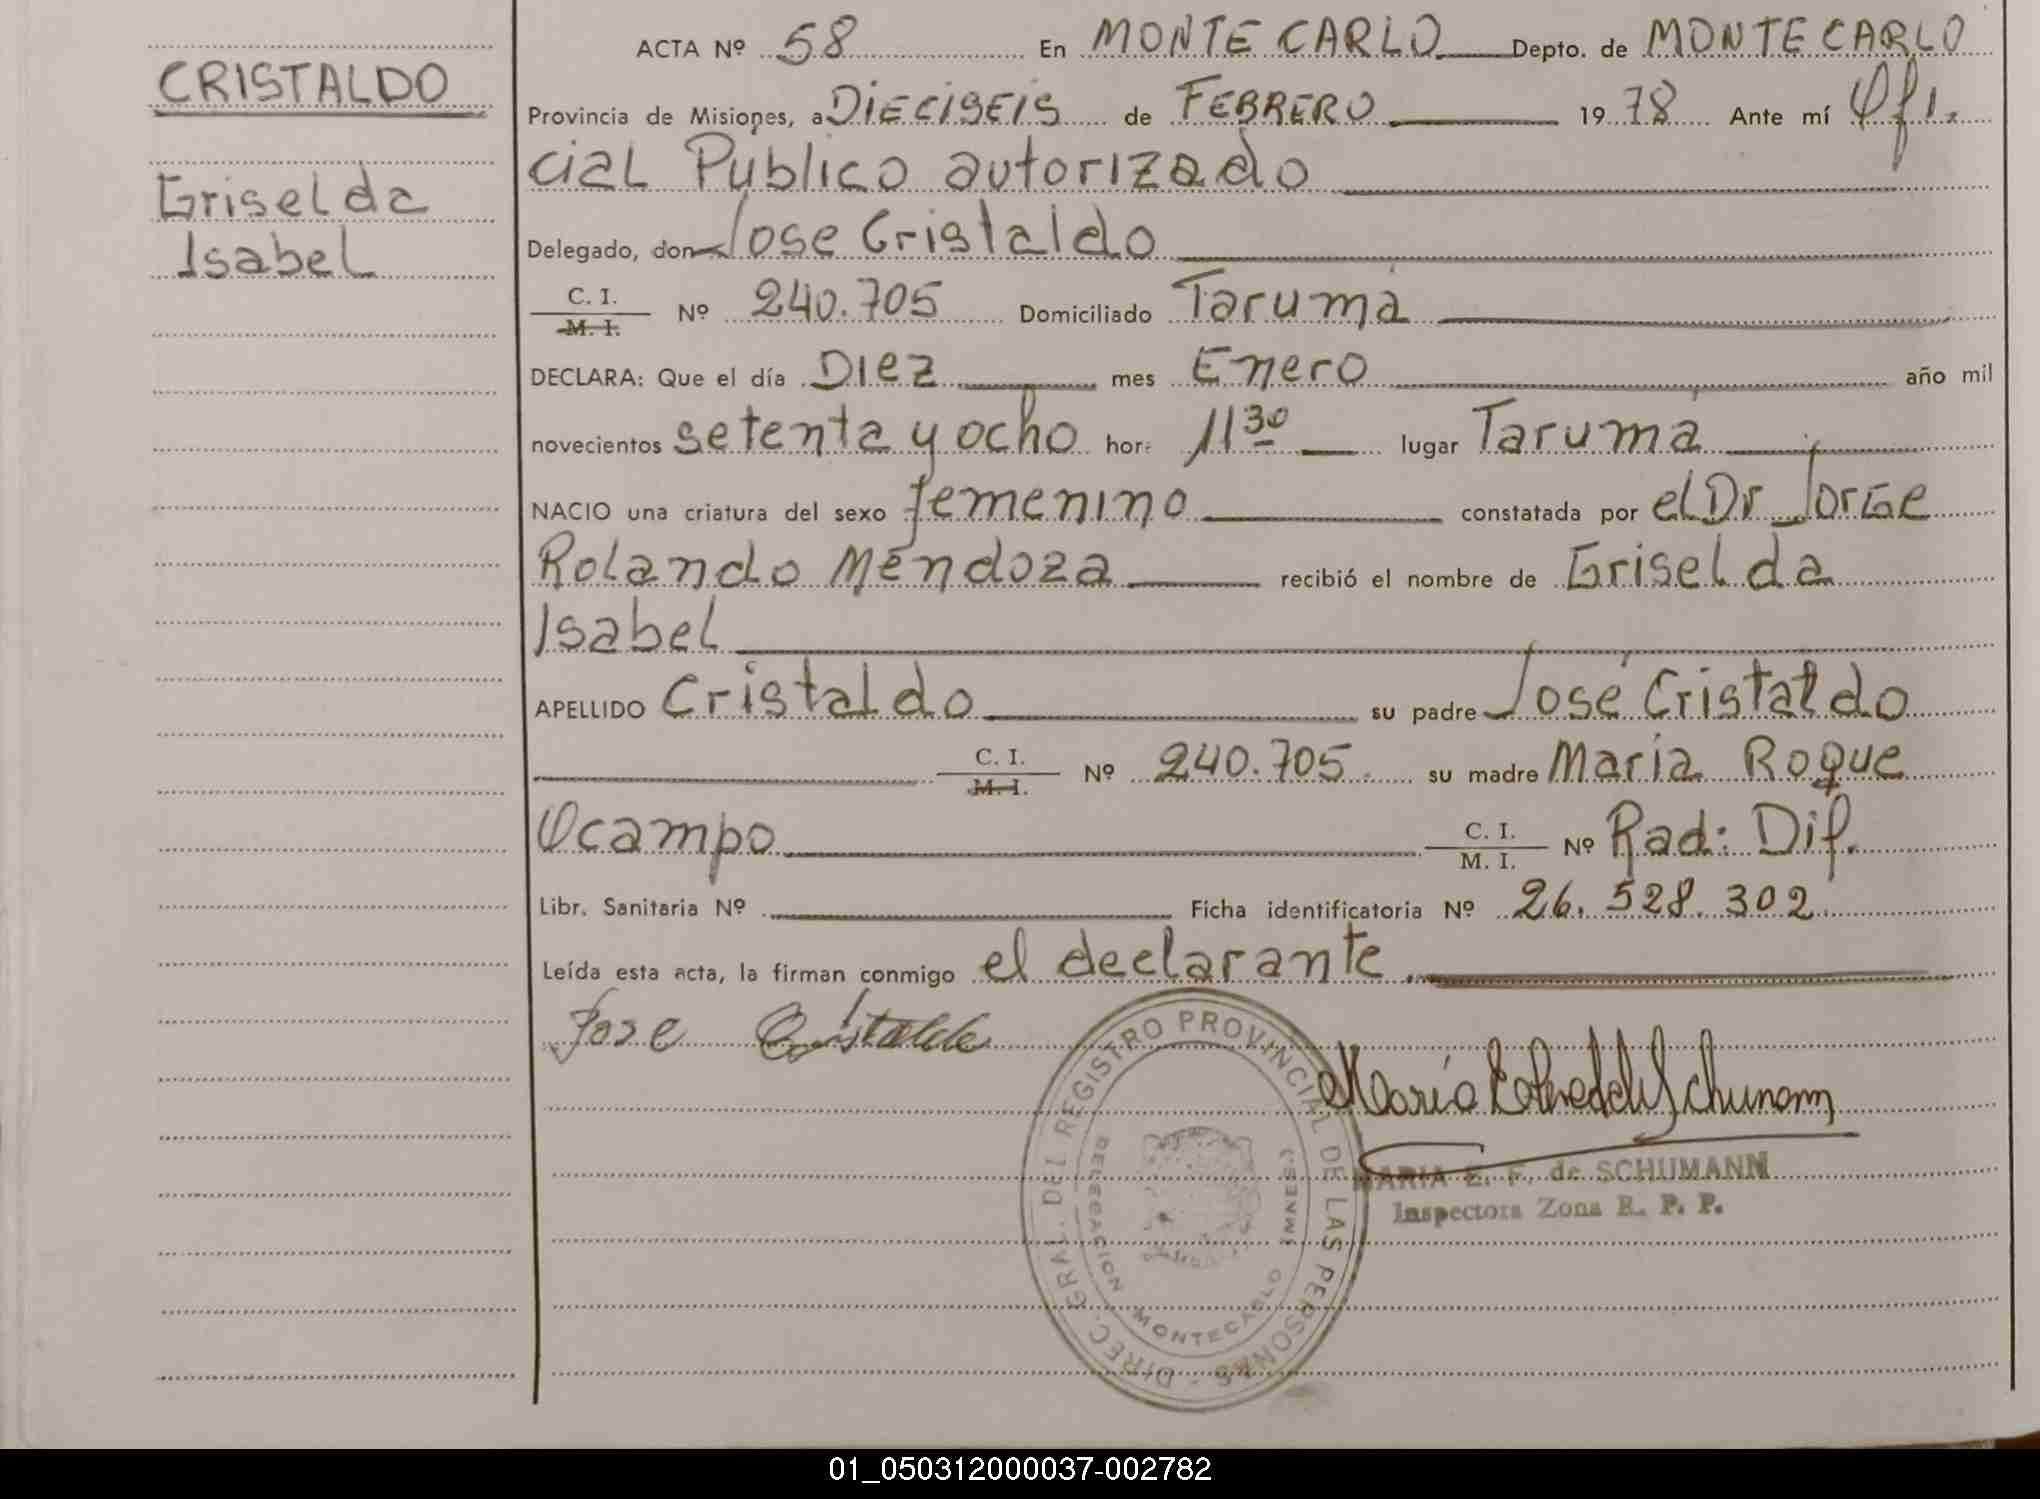 CRISTALDO
Griselda
Isabel
ACTA Nº 58 En MONTE CARLO Depto. de MONTE CARLO
Provincia de Misiones, a DIECISEIS de FEBRERO 19 78 Ante mí Ofi.
cial Publico autorizado
Delegado, don Jose Cristaldo
C. I.
M. I. Nº 240.705 Domiciliado Tarumá
DECLARA: Que el día Diez mes Enero año mil
novecientos setenta y ocho hor: 11 30 lugar Tarumá
NACIO una criatura del sexo femenino constatada por el Dr Jorge
Rolando Mendoza recibió el nombre de Griselda
Isabel
APELLIDO Cristaldo su padre José Cristaldo
C. I.
M. I. Nº 240.705. su madre Maria Roque
Ocampo C. I.
M. I. Nº Rad: Dif.
Libr. Sanitaria Nº Ficha identificatoria Nº 26. 528. 302
Leída esta acta, la firman conmigo el declarante.
Jose Cristaldo
DIREC. GRAL. DEL REGISTRO PROVINCIAL DE LAS PERSONAS -
DELEGACION MONTECARLO (MNES.)
María de Schumann
MARIA E. F. de SCHUMANN
Inspectora Zona R. P. P.
01_050312000037-002782